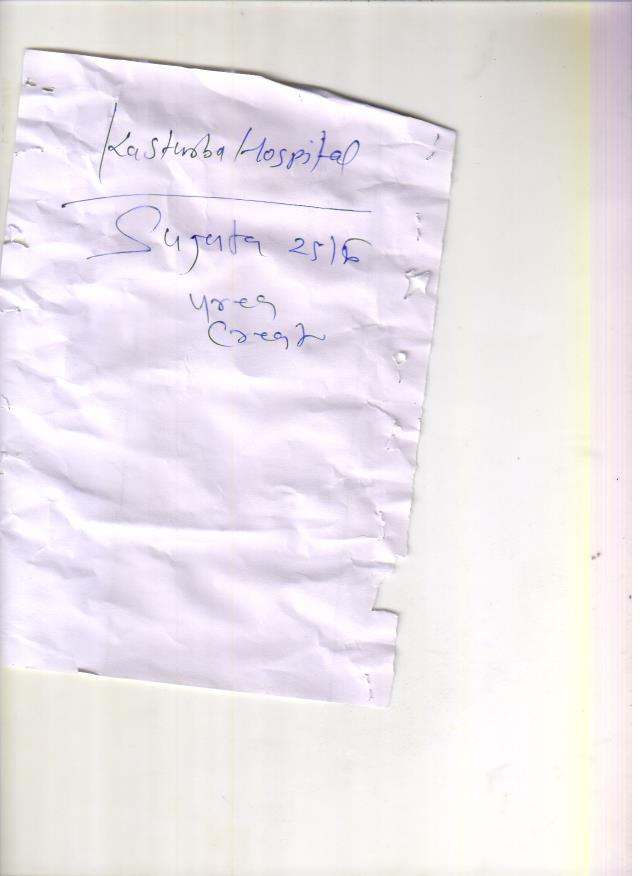 Kasturba Hospital
Sugata 25/F
Urea
Creat